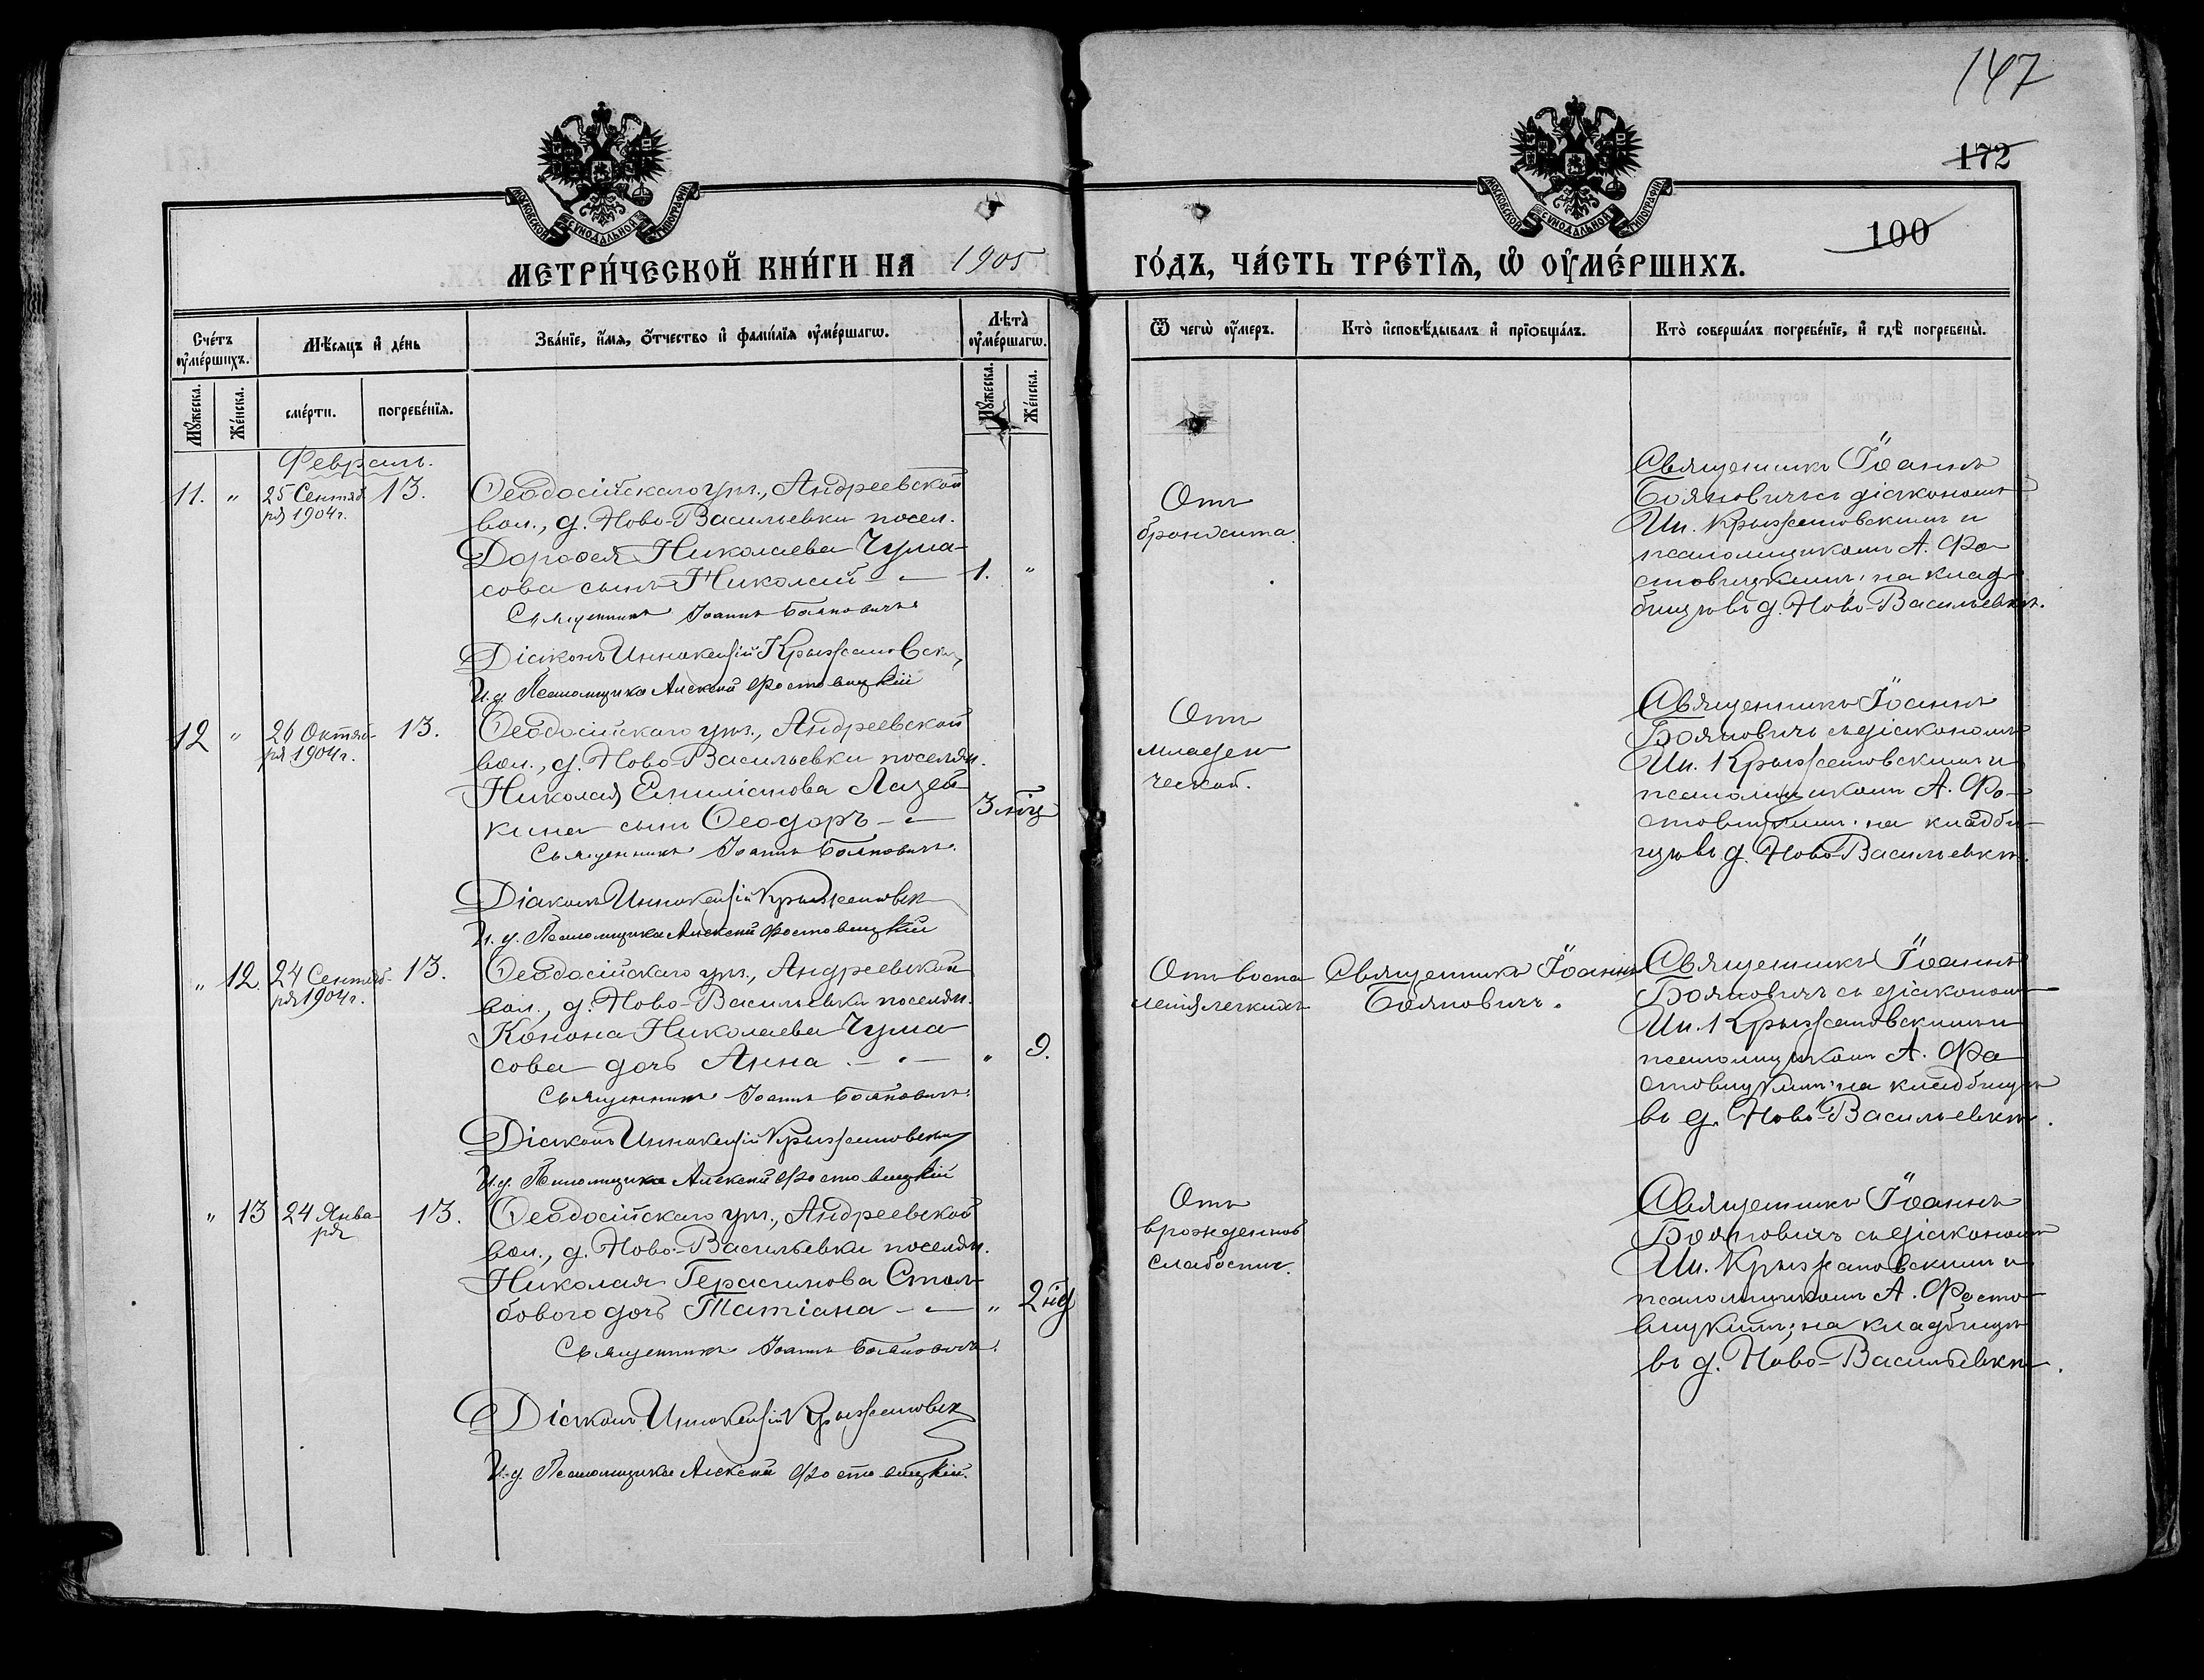 147
172
100
МОСКОВСКОЙ СѴНОДАЛЬНОЙ ТИПОГРАФІИ
МОСКОВСКОЙ СѴНОДАЛЬНОЙ ТИПОГРАФІИ
МЕТРИ́ЧЕСКОЙ КНИ́ГИ НА 1905 ГО́ДЪ, ЧА́СТЬ ТРЕ́ТЇѦ, Ѡ ОУ҆МЕ́РШИХЪ.
Сче́тъ оу҆ме́ршихъ.
Мѣ́сяцъ и҆ де́нь
Зва́нїе, и҆́мѧ, ѻ҆́тчество и҆ фами́лїѧ оу҆ме́ршагѡ.
Лѣ̀та̀ оу҆ме́ршагѡ.
Ѿ чегѡ̀ оу҆́меръ.
Кто̀ и҆сповѣ́дывалъ и҆ прїѻбща́лъ.
Кто̀ соверша́лъ погребе́нїе, и҆ гдѣ̀ погребены̀.
Мꙋ́жеска.
Же́нска.
сме́рти.
погребе́нїѧ.
Мꙋ́жеска.
Же́нска.
Февраль.
11. " 25 Сентяб 13.
ря 1904 г.
Ѳеодосійскаго уѣз., Андреевской
вол., д. Ново-Васильевки посел.
Дороѳея Николаева Чума-
сова сынъ Николай – 1. "
Священникъ Іоаннъ Бояновичъ
Діаконъ Иннокентій Крыжановск
И. д. Псаломщика Алексѣй Фостовицкій
Отъ
бронхита.
Священникъ Іоаннъ
Бояновичъ съ діакономъ
Ин. Крыжановскимъ и
псаломщикомъ А. Фо-
стовицкимъ; на клад-
бищѣ въ д. Ново-Васильевкѣ.
12 " 26 Октяб- 13.
ря 1904 г.
Ѳеодосійскаго уѣз., Андреевской
вол., д. Ново-Васильевки поселян.
Николая Емиліанова Лазей-
кина сынъ Ѳеодоръ – 3 мѣц
Священникъ Іоаннъ Бояновичъ.
Діаконъ Иннокентій Крыжановск
И. д. Псаломщика Алексѣй Фостовицкій
Отъ
младен
ческой.
Священникъ Іоаннъ
Бояновичъ съ діакономъ
Ин. Крыжановскимъ и
псаломщикомъ А. Фо-
стовицкимъ; на кладби-
щѣ въ д. Ново-Васильевкѣ.
" 12. 24 Сентяб- 13.
ря 1904 г.
Ѳеодосійскаго уѣз., Андреевской
вол., д. Ново-Васильевки поселян.
Конона Николаева Чума
сова дочь Анна – " 9.
Священникъ Іоаннъ Бояновичъ.
Діаконъ Иннокентій Крыжановск
И. д. Псаломщика Алексѣй Фостовицкій
Отъ воспа
ленія легкихъ
Священникъ Іоаннъ
Бояновичъ.
Священникъ Іоаннъ
Бояновичъ съ діакономъ
Ин. Крыжановскимъ и
псаломщикомъ А. Фо
стовицкимъ; на кладбищѣ
въ д. Ново-Васильевкѣ.
" 13 24 Янва- 13.
ря
Ѳеодосійскаго уѣз., Андреевской
вол., д. Ново-Васильевки поселян.
Николая Герасимова Стол-
бового дочь Татіана – " 2 нд
Священникъ Іоаннъ Бояновичъ.
Діаконъ Иннокентій Крыжановск
И. д. Псаломщика Алексѣй Фостовицкій.
Отъ
врожденной
слабости.
Священникъ Іоаннъ
Бояновичъ съ діакономъ
Ин. Крыжановскимъ и
псаломщикомъ А. Фосто-
вицкимъ; на кладбищѣ
въ д. Ново-Васильевкѣ.